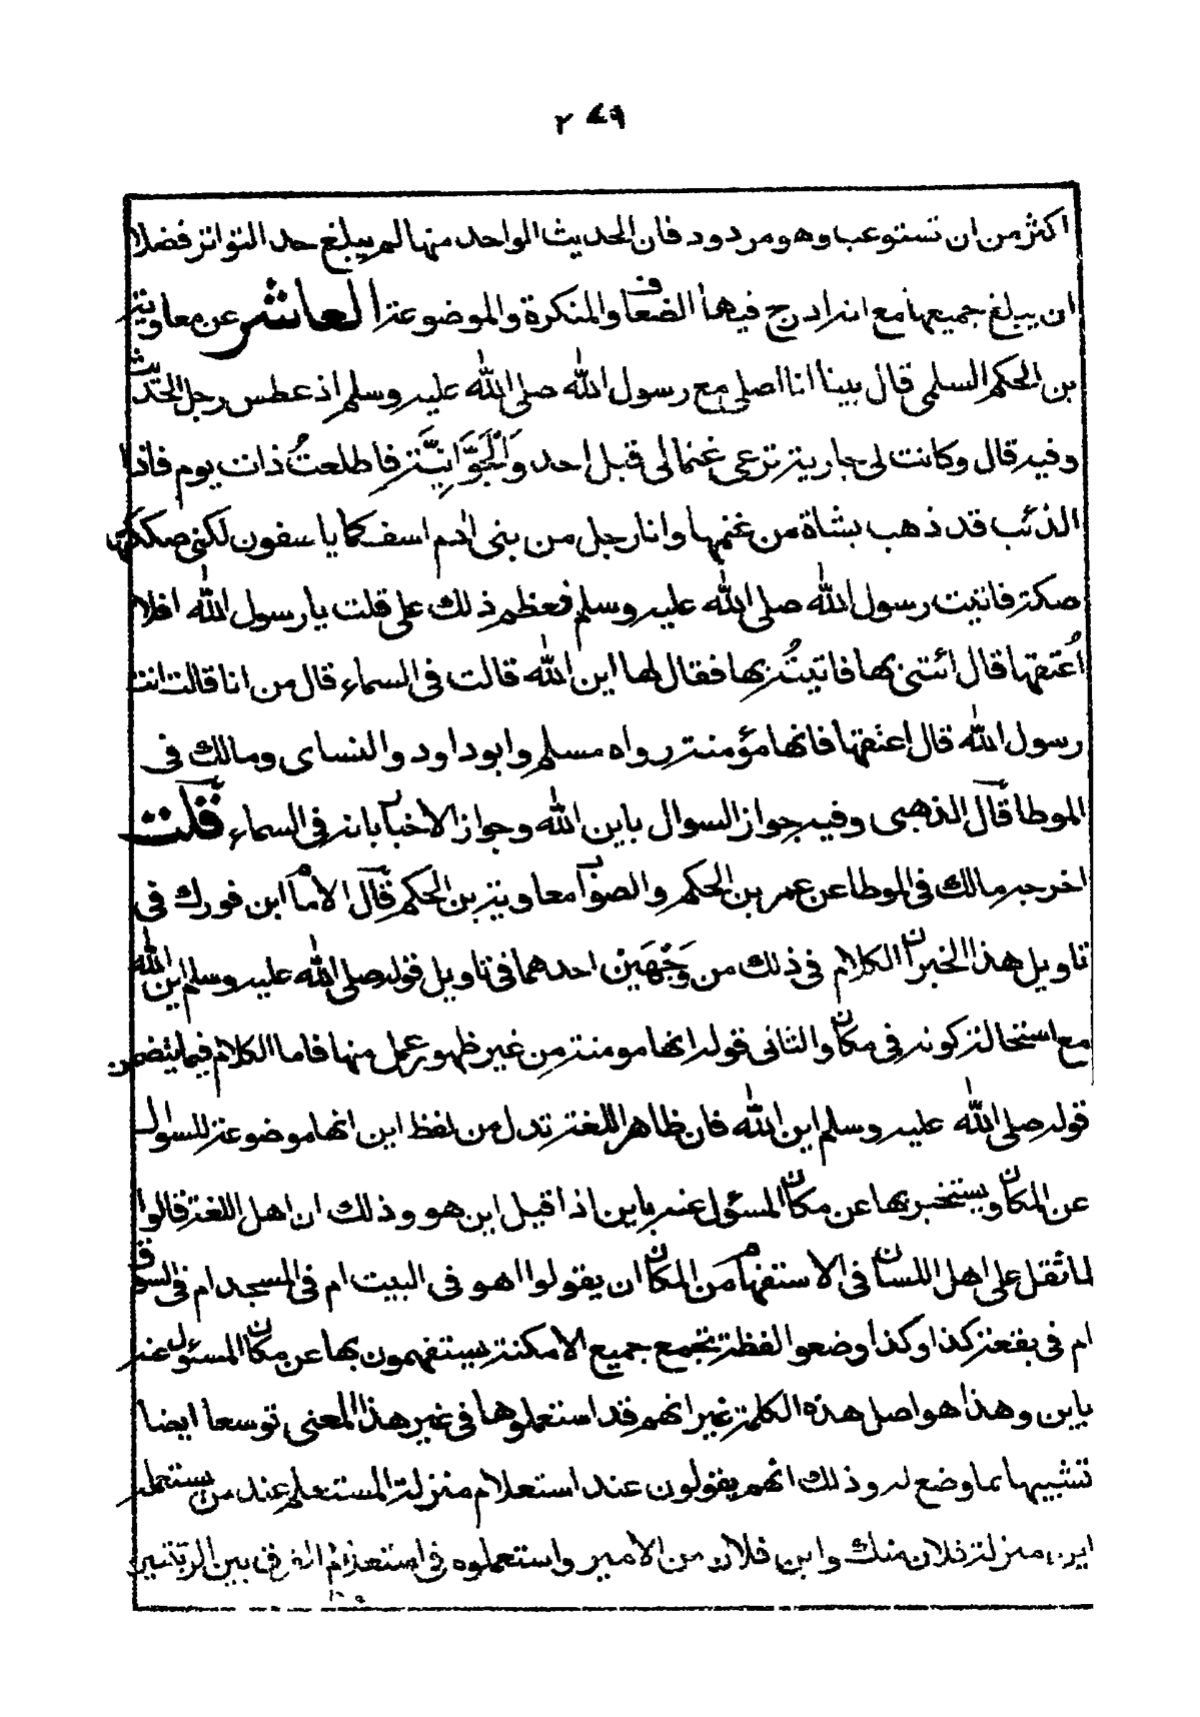 ٢٤٩
اكثر من ان تستوعب وهو مردود فان الحديث الواحد منها لم يبلغ حد التواتر فضلا
ان يبلغ جميعها مع انه ادرج فيها الضعاف والمنكرة والموضوعة العاشر عن معاوية
بن الحكم السلمى قال بينا انا اصلى مع رسول الله صلى الله عليه وسلم اذ عطس رجل الحديث
وفيه قال وكانت لى جارية ترعى غنما لى قبل احد وَالْجَوَّانِيَّة فاطلعتُ ذات يوم فاذا
الذئب قد ذهب بشاة من غنمها وانا رجل من بنى ادم اسف كما ياسفون لكنى صككتها
صكة فاتيت رسول الله صلى الله عليه وسلم فعظم ذلك على قلت يا رسول الله افلا
اُعتقها قال ائتنى بها فاتيتُه بها فقال لها اين الله قالت فى السماء قال من انا قالت انت
رسول الله قال اعتقها فانها مؤمنة رواه مسلم وابو داود والنساى ومالك فى
الموطا قال الذهبى وفيه جواز السوال باين الله وجواز الاخبار بانه فى السماء قلت
اخرجه مالك فى الموطا عن عمر بن الحكم والصواب معاوية بن الحكم قال الامام ابن فورك فى
تاويل هذا الخبر ان الكلام فى ذلك من وَجْهَيْن احدهما فى تاويل قوله صلى الله عليه وسلم اين الله
مع استحالة كونه فى مكان والثانى قوله انها مومنة مِن غير ظهور عمل منها فاما الكلام فيما يتضمن
قوله صلى الله عليه وسلم اين الله فان ظاهر اللغة تدل من لفظ اين انها موضوعة للسوال
عن المكان ويستخبر بها عن مكان المسؤل عنه باين اذا قيل اين هو وذلك ان اهل اللغة قالوا
لما ثقل على اهل اللسان فى الاستفهام عن المكان ان يقولوا اهو فى البيت ام فى المسجد ام فى السوق
ام فى بقعة كذا وكذا وضعوا لفظة تجمع جميع الامكنة يستفهمون بها عن مكان المسئول عنه
باين وهذا هو اصل هذه الكلمة غير انهم قد استعملوها فى غير هذا المعنى توسعا ايضا
تشبيها بما وضع له وذلك انهم يقولون عند استعلام منزلة المستعلم عند من يستعلمه
اين منزلة فلان منك واين فلان من الامير واستعملوه فى استعلام الفرق بين الرتبتين